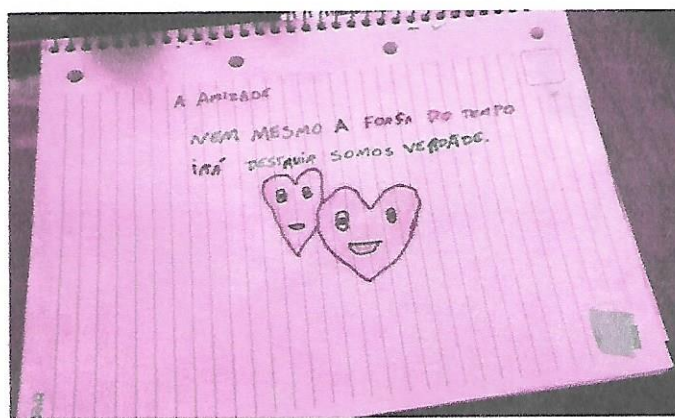 A AMIZADE
NEM MESMO A FORSA DO TEMPO
IRÁ DESTRUIR SOMOS VERDADE.